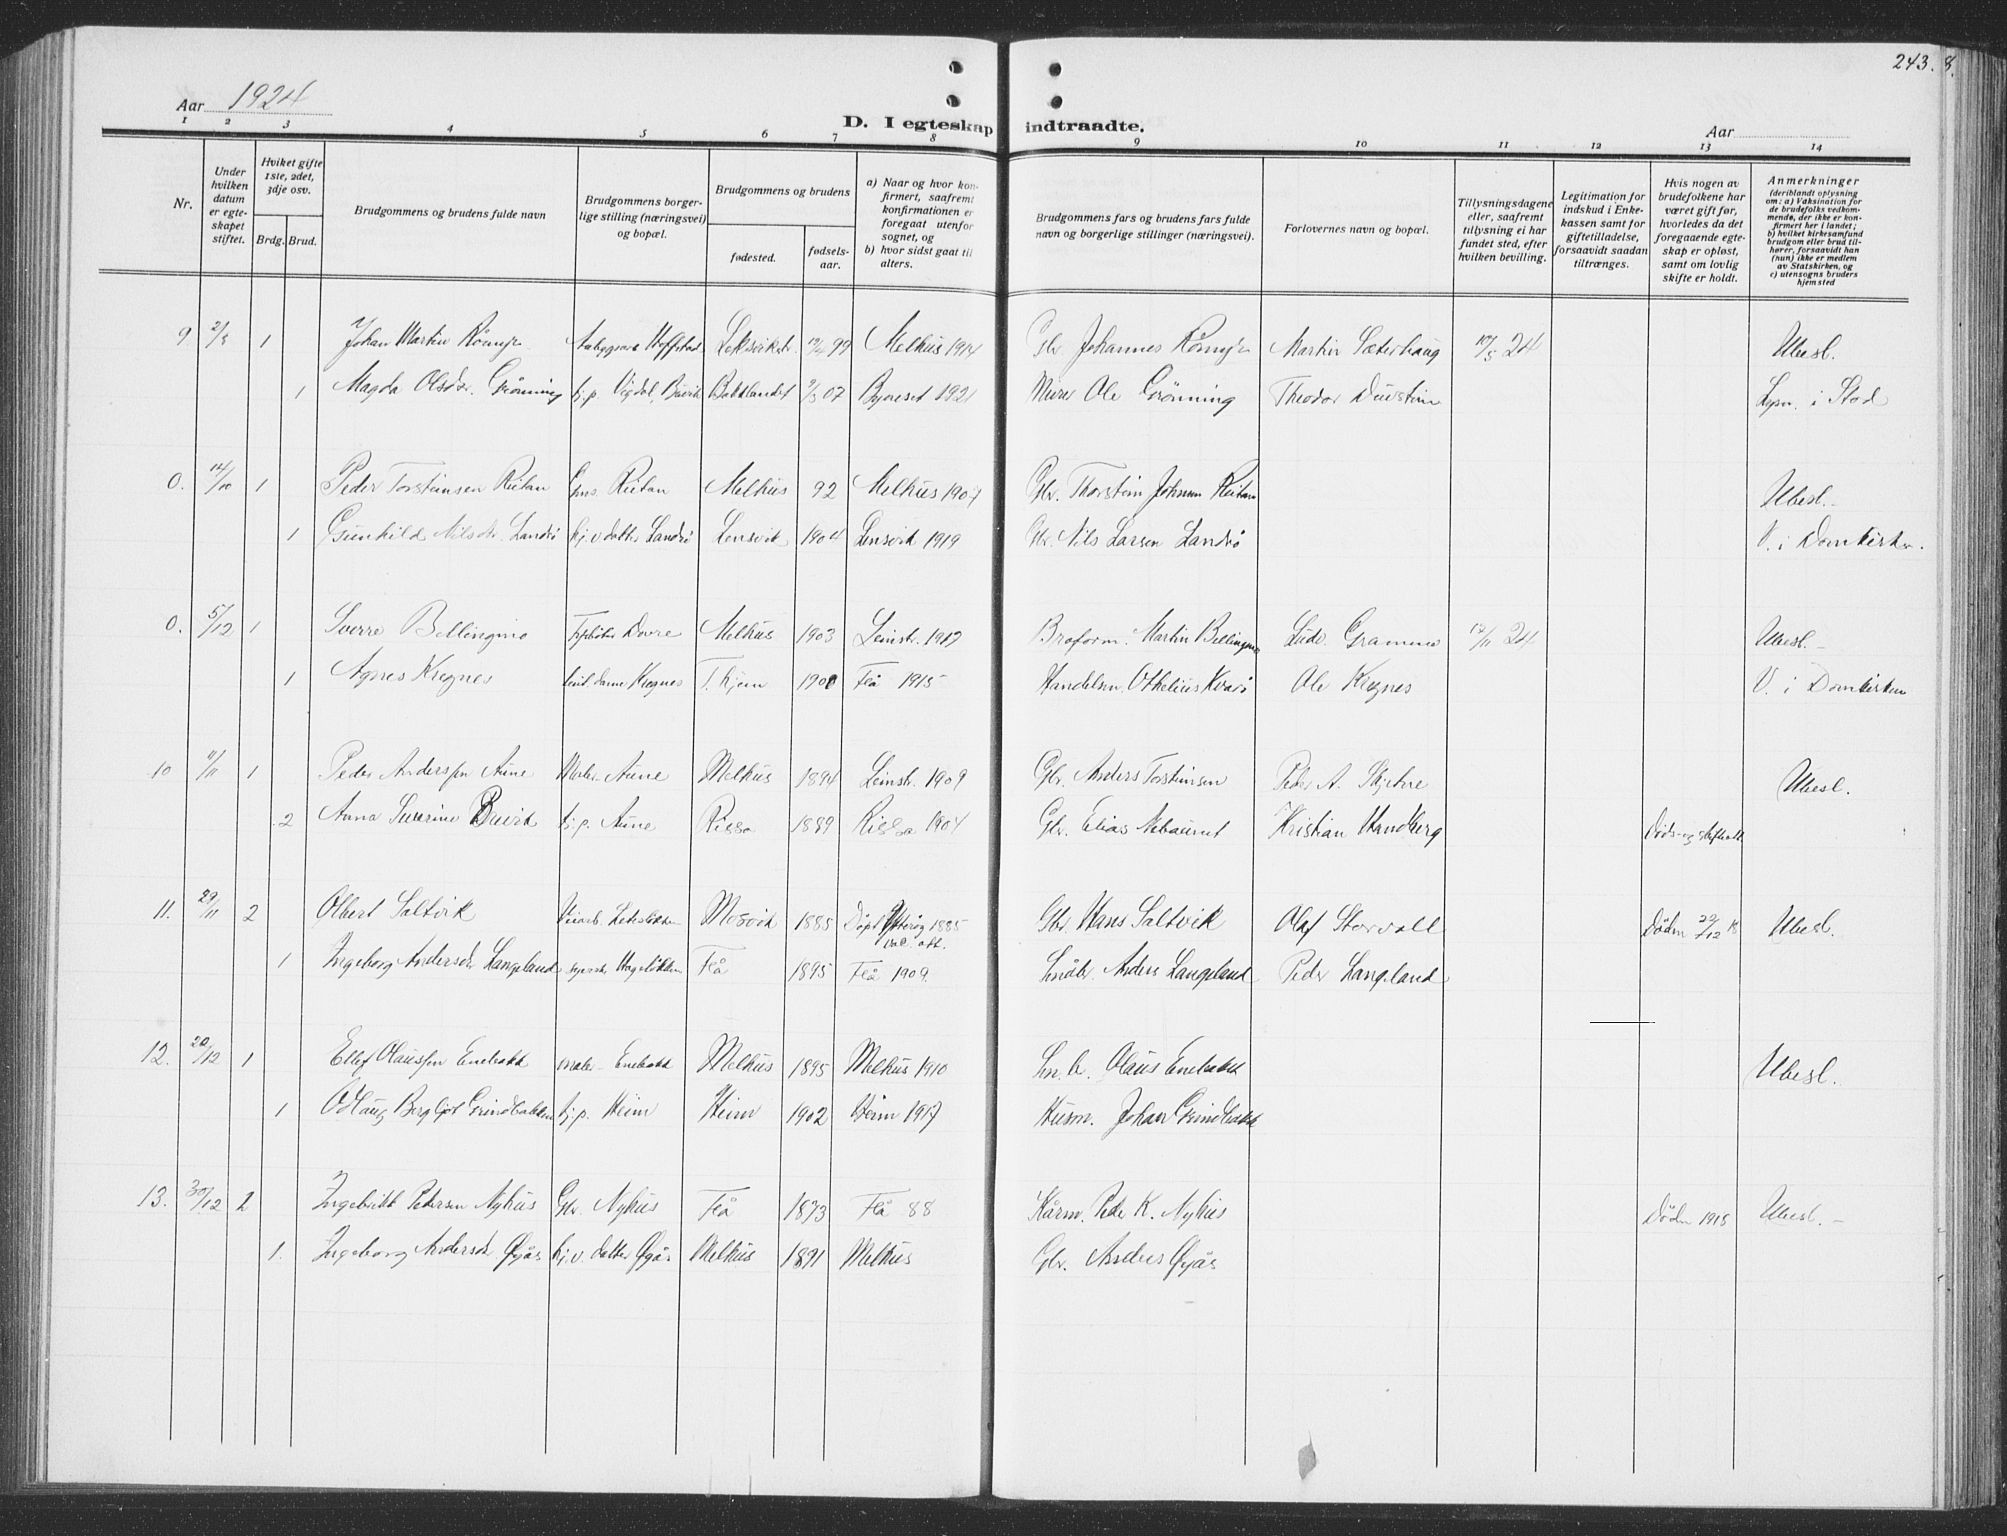 243. 8.
Aar 1924
D. I egteskap indtraadte.
Aar
1 2 3 4 5 6 7 8 9 10 11 12 13 14
Nr.
Under hvilken datum er egteskapet stiftet.
Hviket gifte 1ste, 2det, 3dje osv.
Brdg. Brud.
Brudgommens og brudens fulde navn
Brudgommens borgerlige stilling (næringsvei) og bopæl.
Brudgommens og brudens
fødested.
fødselsaar.
a) Naar og hvor konfirmert, saafremt konfirmationen er foregaat utenfor sognet, og
b) hvor sidst gaat til alters.
Brudgommens fars og brudens fars fulde navn og borgerlige stillinger (næringsvei).
Forlovernes navn og bopæl.
Tillysningsdagene eller, saafremt tillysning ei har fundet sted, efter hvilken bevilling.
Legitimation for indskud i Enkekassen samt for giftetilladelse, forsaavidt saadan tiltrænges.
Hvis nogen av brudefolkene har været gift før, hvorledes da det foregaaende egteskap er opløst, samt om lovlig skifte er holdt.
Anmerkninger (deriblandt oplysning om: a) Vaksination for de brudefolks vedkommende, der ikke er konfirmert her i landet; b) hvilket kirkesamfund brudgom eller brud tilhører, forsaavidt han (hun) ikke er medlem av Statskirken, og c) utensogns bruders hjemsted
9 2/3 1 Johan Martin 99 Melhus 1914 Gbr Johannes Martin Sæterhaug 10/5 24 Ubesl.
1 Magda Olsdr. Grønning tj.p. Vigdal, Buvik 07 Byneset 1921 Murer Ole Grønning Theodor Lysn. i Stod
0. 14/10 1 Peder Torsteinsen Reitan Gms. Reitan Melhus 92 Melhus 1907 Gbr. Thorstein Johnsen Reitan Ubesl.
1 Gunhild Nilsdr. Landrø hj.v. datter Landrø Lensvik 1904 Lensvik 1919 Gbr. Nils Larsen Landrø V. i Domkirken.
0. 5/12 1 Sverre Bellingmo Dovre Melhus 1903 Leinstr. 1917 Martin Bellingmo Ludv. Gramme 12/11 24 Ubesl.
1 Agnes Kregnes Kregnes T.hjem 1900 Flå 1915 Handelsm. Othelius Kvarø Ole Kregnes V. i Domkirken
10 11/11 1 Peder Anderssen Aune Maler Aune Melhus 1894 Leinstr. 1909 Gbr. Anders Torsteinsen Peder A. Skjetne Ubesl.
2 Anna Severine Brevik tj.p. Aune Rissa 1889 Rissa 1904 Gbr. Elias Kristian Handberg Døds- og skifteatt.
11. 29/11 2 Olbert Saltvik Mosvik 1885 Døpt Ytterøy 1885 Gbr. Hans Saltvik Olaf Storvoll Døden 29/12 18 Ubesl.
1 Ingeborg Andersdr. Langeland Flå 1895 Flå 1909. Småbr. Anders Langeland Peder Langeland
12. 20/12 1 Ellef Olaussen Enebakk Maler Enebakk Melhus 1895 Melhus 1910 Sm. br. Olaus Enebakk Ubesl.
1 Odlaug Bergljot Grindbakken tj.p. Heim Heim 1902 Heim 1917 Husm. Johan Grindbakk
13. 30/12 2 Ingebrikt Petersen Nyhus Gbr. Nyhus Flå 1873 Flå 88 Kårm. Peder K. Nyhus Døden 1918 Ubesl.
1. Ingeborg Andersdr Øyås hj.v. datter Øyås Melhus 1891 Melhus Gbr. Anders Øyås